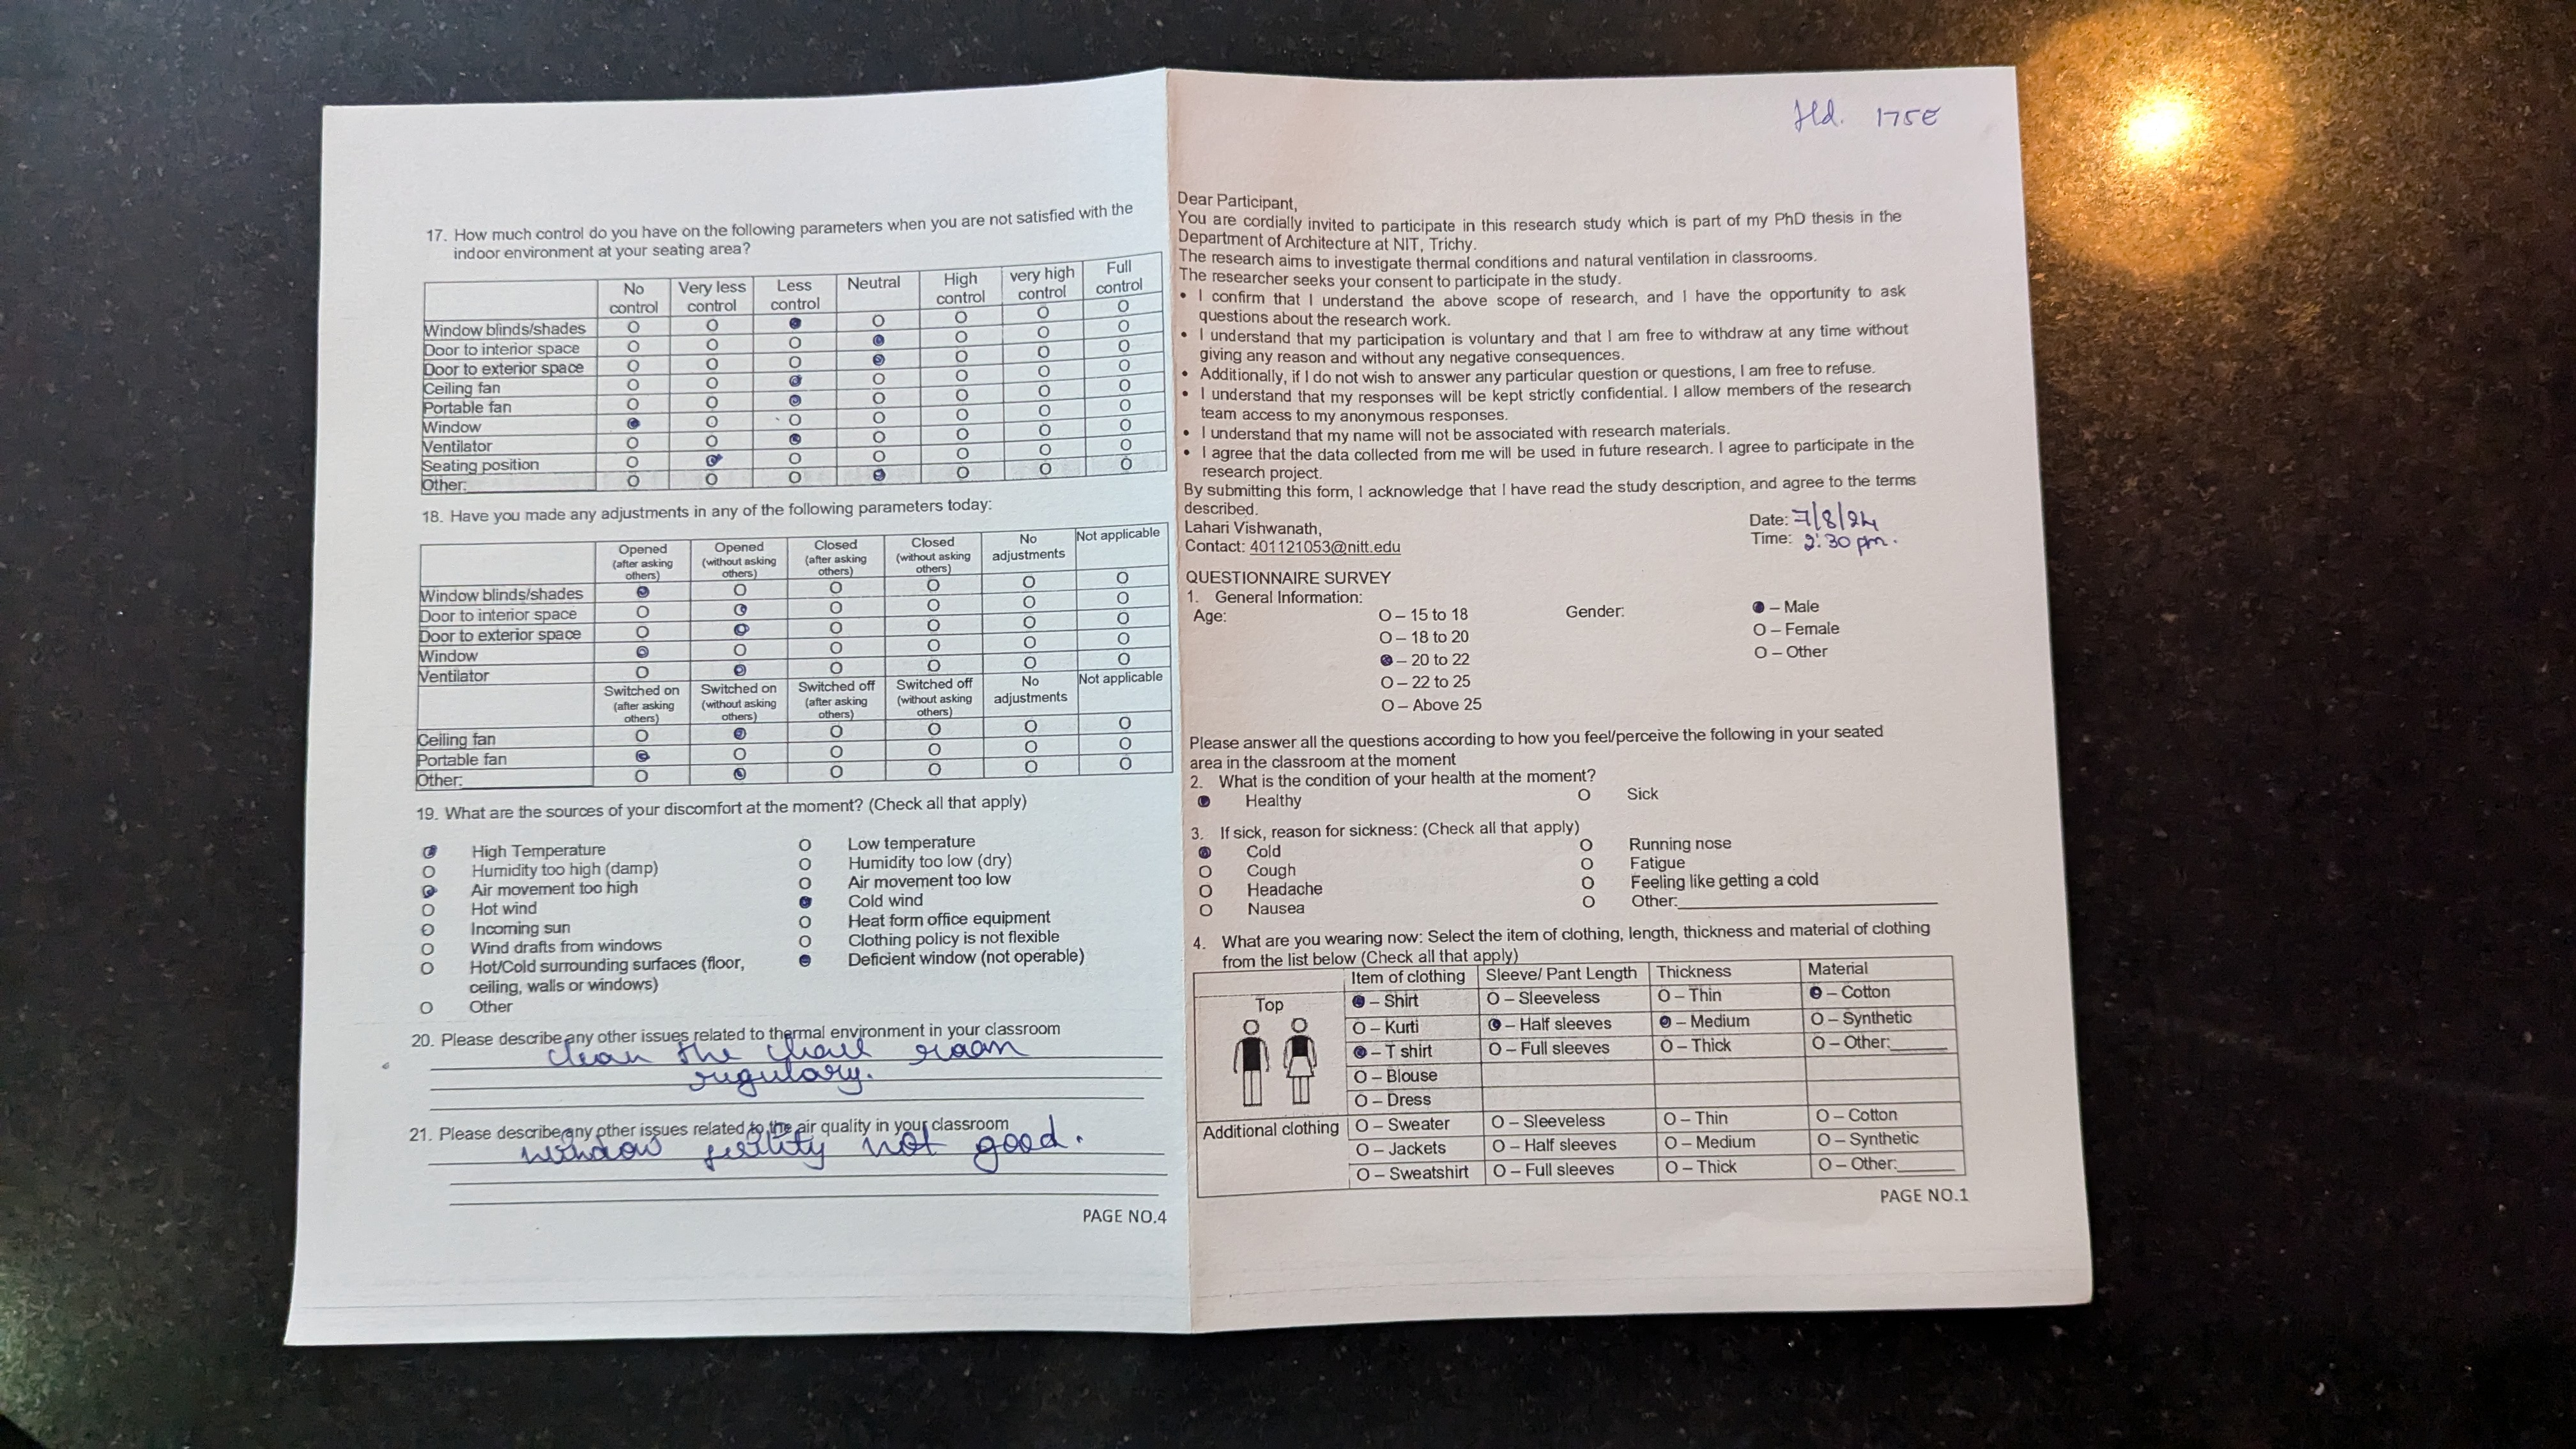 17. How much control do you have on the following parameters when you are not satisfied with the
indoor environment at your seating area?
No control Very less control Less control Neutral High control very high control Full control
Window blinds/shades O O ● O O O O
Door to interior space O O O ● O O O
Door to exterior space O O O ● O O O
Ceiling fan O O ● O O O O
Portable fan O O ● O O O O
Window ● O O O O O O
Ventilator O O ● O O O O
Seating position O ● O O O O O
Other: O O O ● O O O
18. Have you made any adjustments in any of the following parameters today:
Opened (after asking others) Opened (without asking others) Closed (after asking others) Closed (without asking others) No adjustments Not applicable
Window blinds/shades ● O O O O O
Door to interior space O ● O O O O
Door to exterior space O ● O O O O
Window ● O O O O O
Ventilator O ● O O O O
Switched on (after asking others) Switched on (without asking others) Switched off (after asking others) Switched off (without asking others) No adjustments Not applicable
Ceiling fan O ● O O O O
Portable fan ● O O O O O
Other: O ● O O O O
19. What are the sources of your discomfort at the moment? (Check all that apply)
● High Temperature O Low temperature
O Humidity too high (damp) O Humidity too low (dry)
● Air movement too high O Air movement too low
O Hot wind ● Cold wind
O Incoming sun O Heat form office equipment
O Wind drafts from windows O Clothing policy is not flexible
O Hot/Cold surrounding surfaces (floor, ● Deficient window (not operable)
ceiling, walls or windows)
O Other
20. Please describe any other issues related to thermal environment in your classroom
clean the room
regulary.
21. Please describe any other issues related to the air quality in your classroom
window not good.
PAGE NO.4
175E
Dear Participant,
You are cordially invited to participate in this research study which is part of my PhD thesis in the
Department of Architecture at NIT, Trichy.
The research aims to investigate thermal conditions and natural ventilation in classrooms.
The researcher seeks your consent to participate in the study.
• I confirm that I understand the above scope of research, and I have the opportunity to ask
questions about the research work.
• I understand that my participation is voluntary and that I am free to withdraw at any time without
giving any reason and without any negative consequences.
• Additionally, if I do not wish to answer any particular question or questions, I am free to refuse.
• I understand that my responses will be kept strictly confidential. I allow members of the research
team access to my anonymous responses.
• I understand that my name will not be associated with research materials.
• I agree that the data collected from me will be used in future research. I agree to participate in the
research project.
By submitting this form, I acknowledge that I have read the study description, and agree to the terms
described.
Lahari Vishwanath,
Contact: 401121053@nitt.edu
Date: 7/8/24
Time: 2:30 pm.
QUESTIONNAIRE SURVEY
1. General Information:
Age: O – 15 to 18 Gender: ● – Male
O – 18 to 20 O – Female
● – 20 to 22 O – Other
O – 22 to 25
O – Above 25
Please answer all the questions according to how you feel/perceive the following in your seated
area in the classroom at the moment
2. What is the condition of your health at the moment?
● Healthy O Sick
3. If sick, reason for sickness: (Check all that apply)
● Cold O Running nose
O Cough O Fatigue
O Headache O Feeling like getting a cold
O Nausea O Other:
4. What are you wearing now: Select the item of clothing, length, thickness and material of clothing
from the list below (Check all that apply)
Item of clothing Sleeve/ Pant Length Thickness Material
Top ● – Shirt O – Sleeveless O – Thin ● – Cotton
O – Kurti ● – Half sleeves ● – Medium O – Synthetic
● – T shirt O – Full sleeves O – Thick O – Other:
O – Blouse
O – Dress
Additional clothing O – Sweater O – Sleeveless O – Thin O – Cotton
O – Jackets O – Half sleeves O – Medium O – Synthetic
O – Sweatshirt O – Full sleeves O – Thick O – Other:
PAGE NO.1